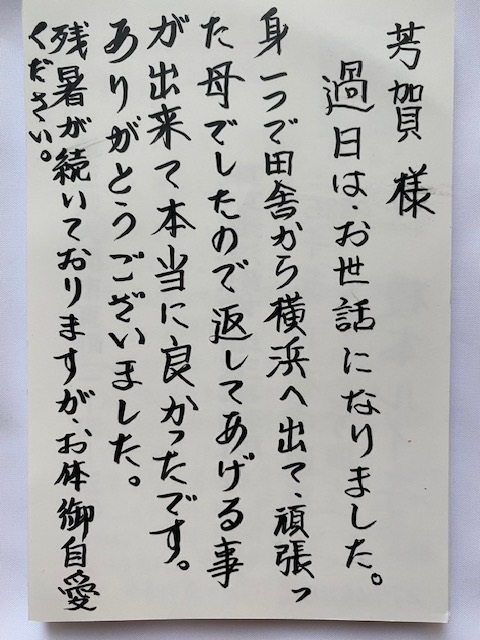 芳賀様
過日は、お世話になりました。
身一つで田舎から横浜へ出て、頑張っ
た母でしたので返してあげる事
が出来て本当に良かったです。
ありがとうございました。
残暑が続いておりますが、お体御自愛
ください。